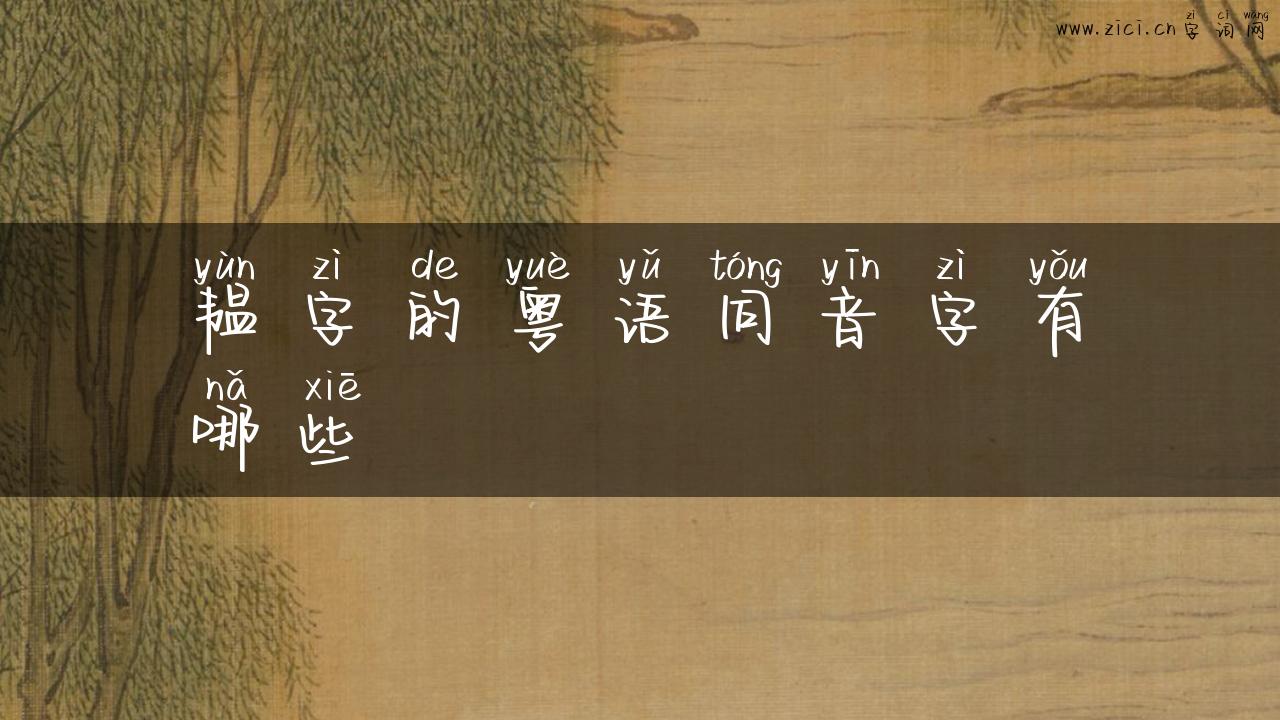 zì cí wǎng
www.zici.cn 字词网
yùn zì de yuè yǔ tóng yīn zì yǒu
韫字的粤语同音字有
nǎ xiē
哪些